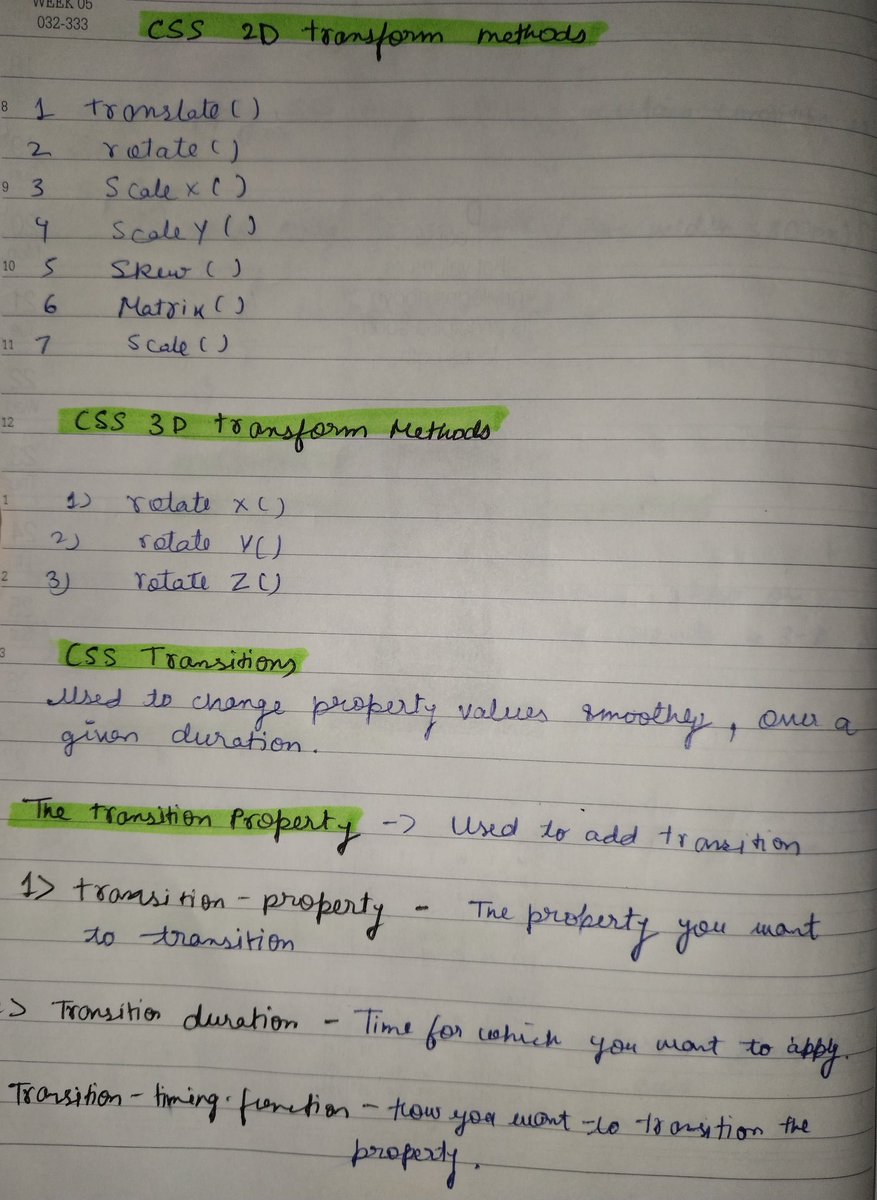 WEEK 05
032-333
CSS 2D transform methods
8
1 translate()
2 rotate()
9
3 Scale x()
4 Scale Y()
10
5 Skew()
6 Matrix()
11
7 Scale()
12
CSS 3D transform Methods
1
1) rotate x()
2) rotate Y()
2
3) rotate Z()
3
CSS Transitions
Used to change property values smoothly, over a
given duration.
The transition Property -> Used to add transition
1> transition-property - The property you want
to transition
> Transition duration - Time for which you want to apply.
Transition-timing-function - How you want to transition the
property.